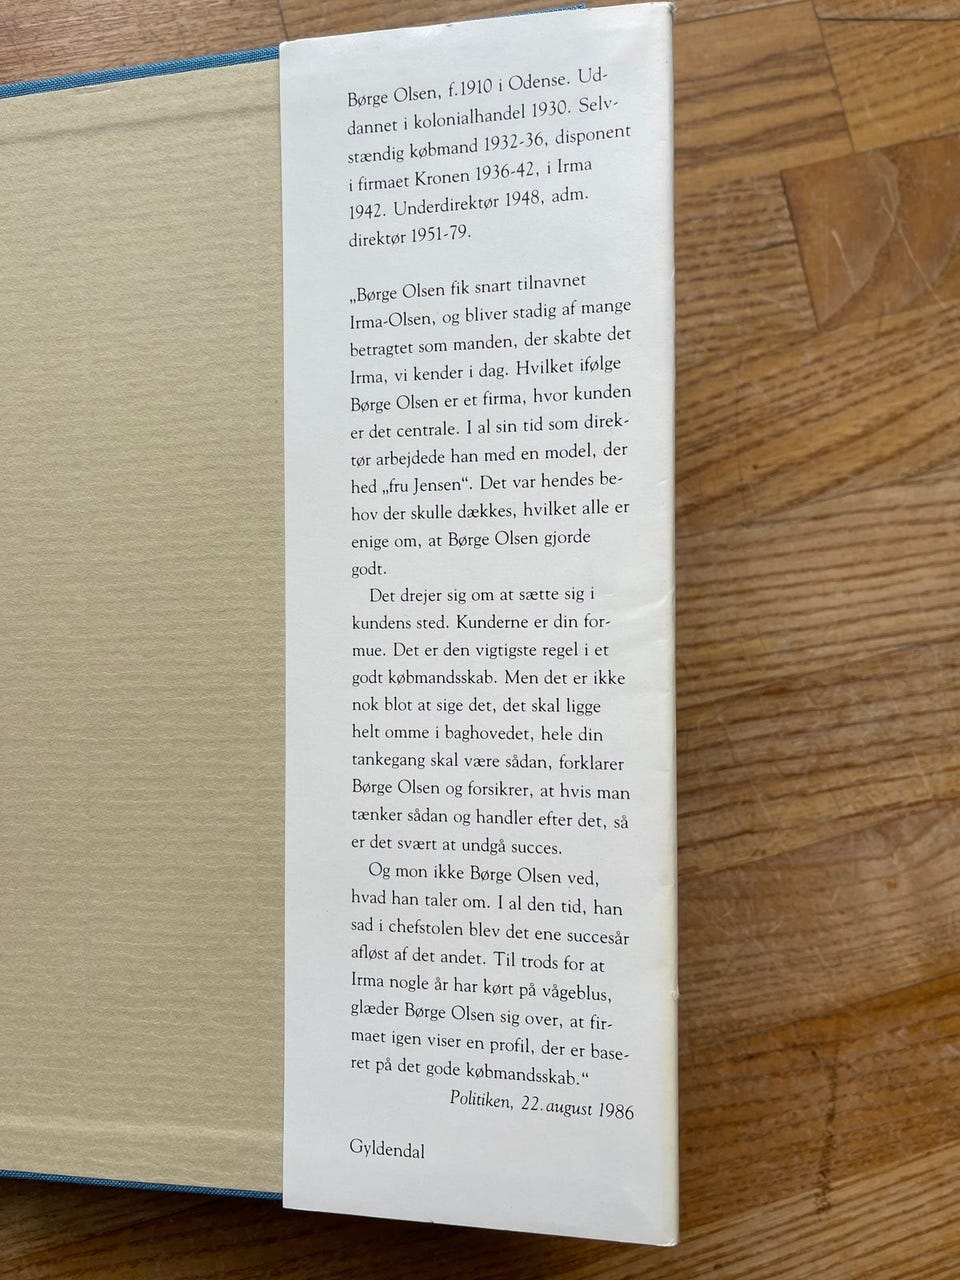 Børge Olsen, f.1910 i Odense. Ud-
dannet i kolonialhandel 1930. Selv-
stændig købmand 1932-36, disponent
i firmaet Kronen 1936-42, i Irma
1942. Underdirektør 1948, adm.
direktør 1951-79.
„Børge Olsen fik snart tilnavnet
Irma-Olsen, og bliver stadig af mange
betragtet som manden, der skabte det
Irma, vi kender i dag. Hvilket ifølge
Børge Olsen er et firma, hvor kunden
er det centrale. I al sin tid som direk-
tør arbejdede han med en model, der
hed „fru Jensen“. Det var hendes be-
hov der skulle dækkes, hvilket alle er
enige om, at Børge Olsen gjorde
godt.
Det drejer sig om at sætte sig i
kundens sted. Kunderne er din for-
mue. Det er den vigtigste regel i et
godt købmandsskab. Men det er ikke
nok blot at sige det, det skal ligge
helt omme i baghovedet, hele din
tankegang skal være sådan, forklarer
Børge Olsen og forsikrer, at hvis man
tænker sådan og handler efter det, så
er det svært at undgå succes.
Og mon ikke Børge Olsen ved,
hvad han taler om. I al den tid, han
sad i chefstolen blev det ene succesår
afløst af det andet. Til trods for at
Irma nogle år har kørt på vågeblus,
glæder Børge Olsen sig over, at fir-
maet igen viser en profil, der er base-
ret på det gode købmandsskab.“
Politiken, 22. august 1986
Gyldendal